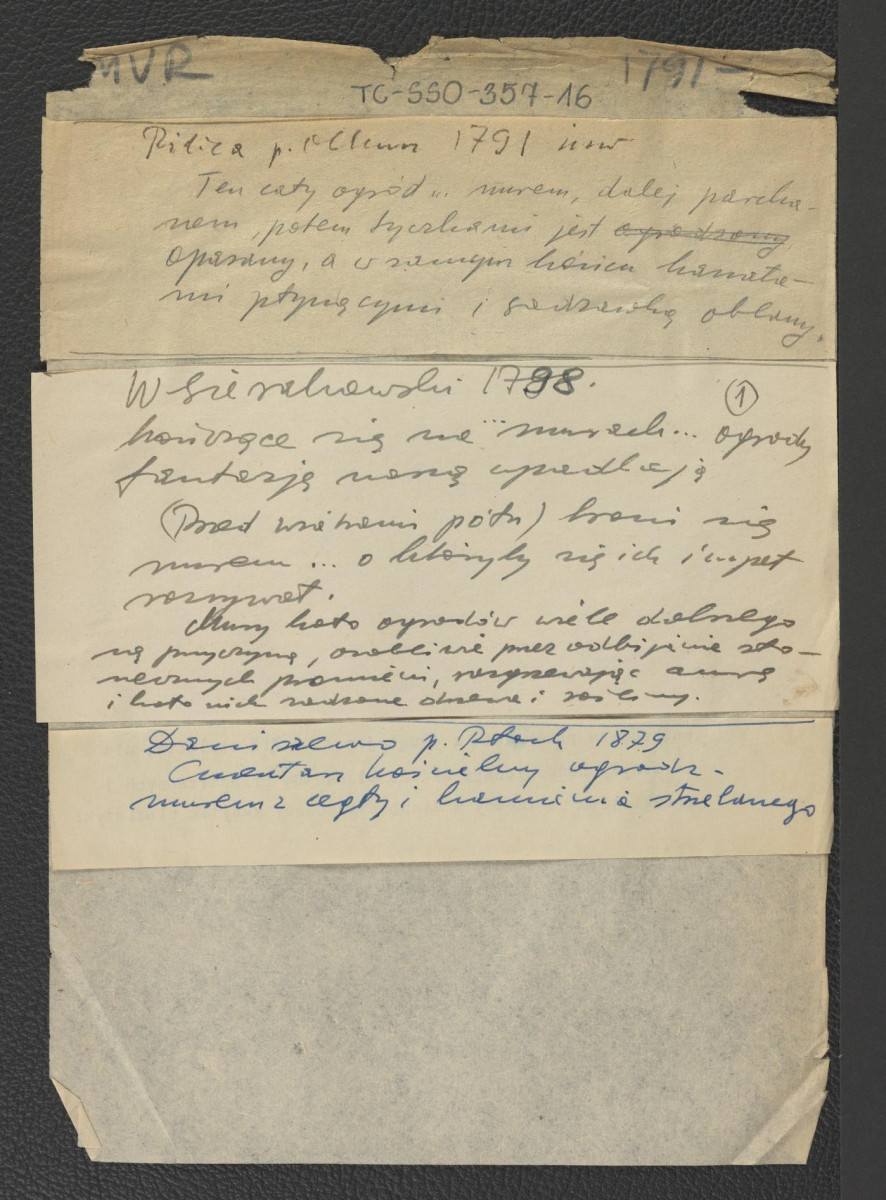 MUR 1791-
TC-SSO-357-16
p. 1791 inw
Ten cały ogród ... murem, dalej parcha-
nem, potem tyczkami jest ogrodzony
opasany, a w samym końcu kanała-
mi płynącymi i sadzawką oblany.
W Sierakowski 1798.
1
kończące się na ... murach ... ogrody
fantazją naszą upadlają
(Przed wiatrami półn) broni się
murem ... o któryby się ich impet
rozrywał.
Mury koło ogrodów wiele dobrego
są przyczyną, osobliwie przez odbijanie sło-
necznych promieni, rozgrzewając aurę
i koło nich sadzone drzewa i rośliny.
Daniszewo p. Płock 1879
Cmentarz kościelny ogrodz.
murem z cegły i kamienia strzelanego